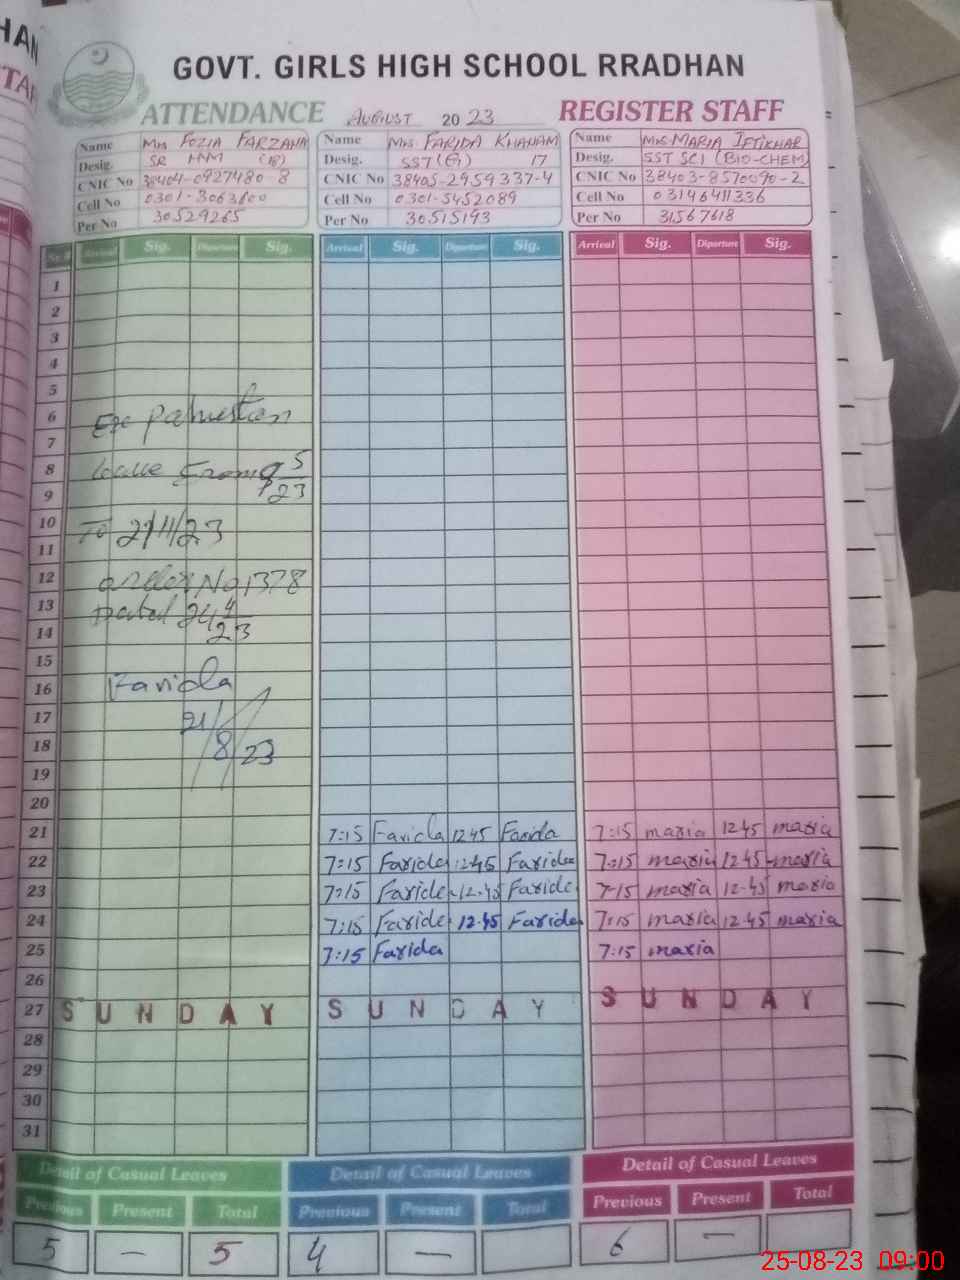 HAN
STAF
GOVT. GIRLS HIGH SCHOOL RRADHAN
ATTENDANCE AUGUST 2023 REGISTER STAFF
Name Mrs FOZIA FARZANA
Desig. SR HM (18)
CNIC No 38404-0927480-8
Cell No 0301-3063800
Per No 30529265
Name Mrs. FARIDA KHANAM
Desig. SST(G) 17
CNIC No 38405-2959337-4
Cell No 0301-5452089
Per No 30515193
Name Mrs. MARIA IFTIKHAR
Desig. SST SCI (BIO-CHEM)
CNIC No 38403-8570090-2
Cell No 03146411336
Per No 31567618
Sr.# Arrival Sig. Diparture Sig. Arrival Sig. Diparture Sig. Arrival Sig. Diparture Sig.
1
2
3
4
5
6 Exe Pakistan
7
8 leave From 9 5/23
9
10 To 21/11/23
11
12 order No 1378
13 Dated 24 4/23
14
15
16 Farida
17 21/8/23
18
19
20
21 7:15 Farida 12 45 Farida 7:15 maria 12 45 maria
22 7:15 Farida 12:45 Farida 7:15 maria 12 45 maria
23 7:15 Farida 12.45 Farida 7:15 maria 12-45 maria
24 7:15 Farida 12.45 Farida 7:15 maria 12.45 maria
25 7:15 Farida 7:15 maria
26
27 SUNDAY SUNDAY SUNDAY
28
29
30
31
Detail of Casual Leaves Detail of Casual Leaves Detail of Casual Leaves
Previous Present Total Previous Present Total Previous Present Total
5 — 5 4 — 6 —
25-08-23 09:00